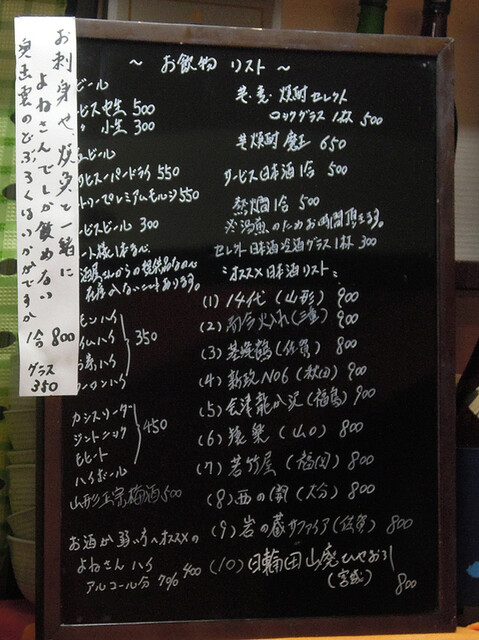 お刺身や焼魚と一緒に
よねさんでしか飲めない
奥出雲のどぶろくはいかがですか
1合 800
グラス 350
～ お飲物 リスト ～
ビール
ビス中生 500
小生 300
ビール
サヒスーパードライ 550
トリープレミアムモルツ 550
ービール 300
350
カシスソーダー
ジントニック
モヒート
ハイボール
450
山形正宗梅酒 500
お酒が弱い方へオススメの
よねさん ハイ 400
アルコール分 7%
芋・麦・焼酎セレクト
ロックグラス 1杯 500
芋焼酎 魔王 650
サービス日本酒 1合 500
熱燗 1合 500
お時間頂きます。
セレクト日本酒冷酒グラス1杯 300
オススメ日本酒リスト
(1) 14代 (山形) 900
(2) 而今火入れ (三重) 900
(3) 基峰鶴 (佐賀) 800
(4) 新政 NO6 (秋田) 900
(5) 会津龍が沢 (福島) 900
(6) 猿楽 (山口) 800
(7) 若竹屋 (福岡) 800
(8) 西の関 (大分) 800
(9) 岩の蔵サファイア (佐賀) 800
(10) 日輪田山廃ひやおろし
(宮城) 800